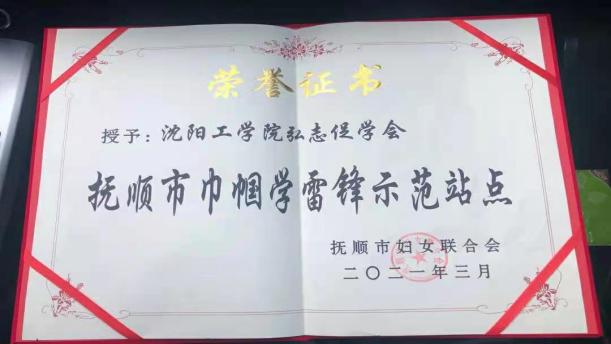 荣誉证书
授予：沈阳工学院弘志促学会
抚顺市巾帼学雷锋示范站点
抚顺市妇女联合会
二〇二一年三月